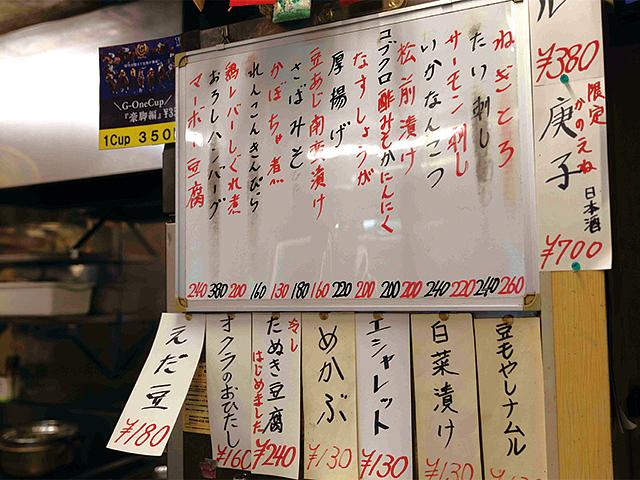 ル
¥380
限定
かのえね
庚子
日本酒
¥700
ねぎとろ 260
たい刺し 240
サーモン刺し 220
いかなんこつ 240
松前漬け 200
コブクロ酢みそかにんにく 200
なすしょうが 200
厚揚げ 220
豆あじ南蛮漬け 160
さばみそ 180
かぼちゃ煮 130
れんこんきんぴら 160
鶏レバーしぐれ煮 200
おろしハンバーグ 380
マーボー豆腐 240
G-OneCup
『豪脚編』
1Cup 350
豆もやしナムル
白菜漬け
¥130
エシャレット
¥130
めかぶ
¥130
冷し
たぬき豆腐
はじめました
¥240
オクラのおひたし
¥160
えだ豆
¥180